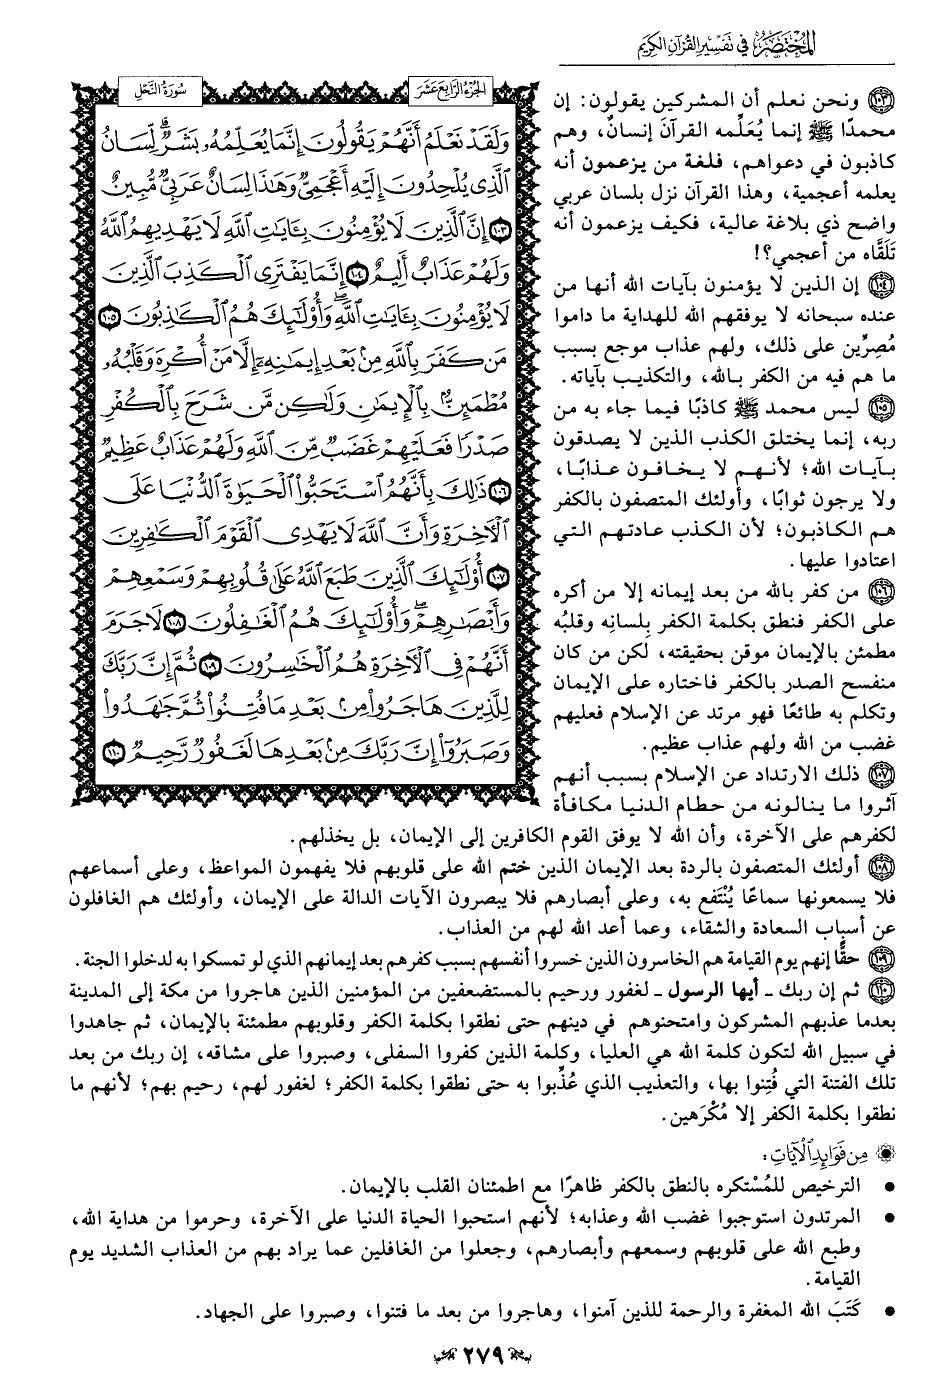 المختصر في تفسير القرآن الكريم
الجزء الرابع عشر
سورة النحل
وَلَقَدْ نَعْلَمُ أَنَّهُمْ يَقُولُونَ إِنَّمَا يُعَلِّمُهُۥ بَشَرٌۗ لِّسَانُ
ٱلَّذِي يُلْحِدُونَ إِلَيْهِ أَعْجَمِيٌّ وَهَٰذَا لِسَانٌ عَرَبِيٌّ مُّبِينٌ
١٠٣ إِنَّ ٱلَّذِينَ لَا يُؤْمِنُونَ بِـَٔايَٰتِ ٱللَّهِ لَا يَهْدِيهِمُ ٱللَّهُ
وَلَهُمْ عَذَابٌ أَلِيمٌ ١٠٤ إِنَّمَا يَفْتَرِي ٱلْكَذِبَ ٱلَّذِينَ
لَا يُؤْمِنُونَ بِـَٔايَٰتِ ٱللَّهِۖ وَأُوْلَٰٓئِكَ هُمُ ٱلْكَٰذِبُونَ ١٠٥
مَن كَفَرَ بِٱللَّهِ مِنۢ بَعْدِ إِيمَٰنِهِۦٓ إِلَّا مَنْ أُكْرِهَ وَقَلْبُهُۥ
مُطْمَئِنٌّۢ بِٱلْإِيمَٰنِ وَلَٰكِن مَّن شَرَحَ بِٱلْكُفْرِ
صَدْرًا فَعَلَيْهِمْ غَضَبٌ مِّنَ ٱللَّهِ وَلَهُمْ عَذَابٌ عَظِيمٌ
١٠٦ ذَٰلِكَ بِأَنَّهُمُ ٱسْتَحَبُّواْ ٱلْحَيَوٰةَ ٱلدُّنْيَا عَلَى
ٱلْأٓخِرَةِ وَأَنَّ ٱللَّهَ لَا يَهْدِي ٱلْقَوْمَ ٱلْكَٰفِرِينَ
١٠٧ أُوْلَٰٓئِكَ ٱلَّذِينَ طَبَعَ ٱللَّهُ عَلَىٰ قُلُوبِهِمْ وَسَمْعِهِمْ
وَأَبْصَٰرِهِمْۖ وَأُوْلَٰٓئِكَ هُمُ ٱلْغَٰفِلُونَ ١٠٨ لَا جَرَمَ
أَنَّهُمْ فِي ٱلْأٓخِرَةِ هُمُ ٱلْخَٰسِرُونَ ١٠٩ ثُمَّ إِنَّ رَبَّكَ
لِلَّذِينَ هَاجَرُواْ مِنۢ بَعْدِ مَا فُتِنُواْ ثُمَّ جَٰهَدُواْ
وَصَبَرُوٓاْ إِنَّ رَبَّكَ مِنۢ بَعْدِهَا لَغَفُورٌ رَّحِيمٌ ١١٠
١٠٣ ونحن نعلم أن المشركين يقولون: إن
محمدًا ﷺ إنما يُعَلِّمه القرآنَ إنسانٌ، وهم
كاذبون في دعواهم، فلغة من يزعمون أنه
يعلمه أعجمية، وهذا القرآن نزل بلسان عربي
واضح ذي بلاغة عالية، فكيف يزعمون أنه
تَلَقَّاه من أعجمي؟!
١٠٤ إن الذين لا يؤمنون بآيات الله أنها من
عنده سبحانه لا يوفقهم الله للهداية ما داموا
مُصِرِّين على ذلك، ولهم عذاب موجع بسبب
ما هم فيه من الكفر بالله، والتكذيب بآياته.
١٠٥ ليس محمد ﷺ كاذبًا فيما جاء به من
ربه، إنما يختلق الكذب الذين لا يصدقون
بآيات الله؛ لأنهم لا يخافون عذابًا،
ولا يرجون ثوابًا، وأولئك المتصفون بالكفر
هم الكاذبون؛ لأن الكذب عادتهم التي
اعتادوا عليها.
١٠٦ من كفر بالله من بعد إيمانه إلا من أكره
على الكفر فنطق بكلمة الكفر بِلسانِه وقلبُه
مطمئن بالإيمان موقن بحقيقته، لكن من كان
منفسح الصدر بالكفر فاختاره على الإيمان
وتكلم به طائعًا فهو مرتد عن الإسلام فعليهم
غضب من الله ولهم عذاب عظيم.
١٠٧ ذلك الارتداد عن الإسلام بسبب أنهم
آثروا ما ينالونه من حطام الدنيا مكافأة
لكفرهم على الآخرة، وأن الله لا يوفق القوم الكافرين إلى الإيمان، بل يخذلهم.
١٠٨ أولئك المتصفون بالردة بعد الإيمان الذين ختم الله على قلوبهم فلا يفهمون المواعظ، وعلى أسماعهم
فلا يسمعونها سماعًا يُنْتَفع به، وعلى أبصارهم فلا يبصرون الآيات الدالة على الإيمان، وأولئك هم الغافلون
عن أسباب السعادة والشقاء، وعما أعد الله لهم من العذاب.
١٠٩ حقًّا إنهم يوم القيامة هم الخاسرون الذين خسروا أنفسهم بسبب كفرهم بعد إيمانهم الذي لو تمسكوا به لدخلوا الجنة.
١١٠ ثم إن ربك ـ أيها الرسول ـ لغفور ورحيم بالمستضعفين من المؤمنين الذين هاجروا من مكة إلى المدينة
بعدما عذبهم المشركون وامتحنوهم في دينهم حتى نطقوا بكلمة الكفر وقلوبهم مطمئنة بالإيمان، ثم جاهدوا
في سبيل الله لتكون كلمة الله هي العليا، وكلمة الذين كفروا السفلى، وصبروا على مشاقه، إن ربك من بعد
تلك الفتنة التي فُتِنوا بها، والتعذيب الذي عُذِّبوا به حتى نطقوا بكلمة الكفر؛ لغفور لهم، رحيم بهم؛ لأنهم ما
نطقوا بكلمة الكفر إلا مُكْرَهين.
من فوائد الآيات:
• الترخيص للمُسْتكره بالنطق بالكفر ظاهرًا مع اطمئنان القلب بالإيمان.
• المرتدون استوجبوا غضب الله وعذابه؛ لأنهم استحبوا الحياة الدنيا على الآخرة، وحرموا من هداية الله،
وطبع الله على قلوبهم وسمعهم وأبصارهم، وجعلوا من الغافلين عما يراد بهم من العذاب الشديد يوم
القيامة.
• كَتَبَ الله المغفرة والرحمة للذين آمنوا، وهاجروا من بعد ما فتنوا، وصبروا على الجهاد.
٢٧٩